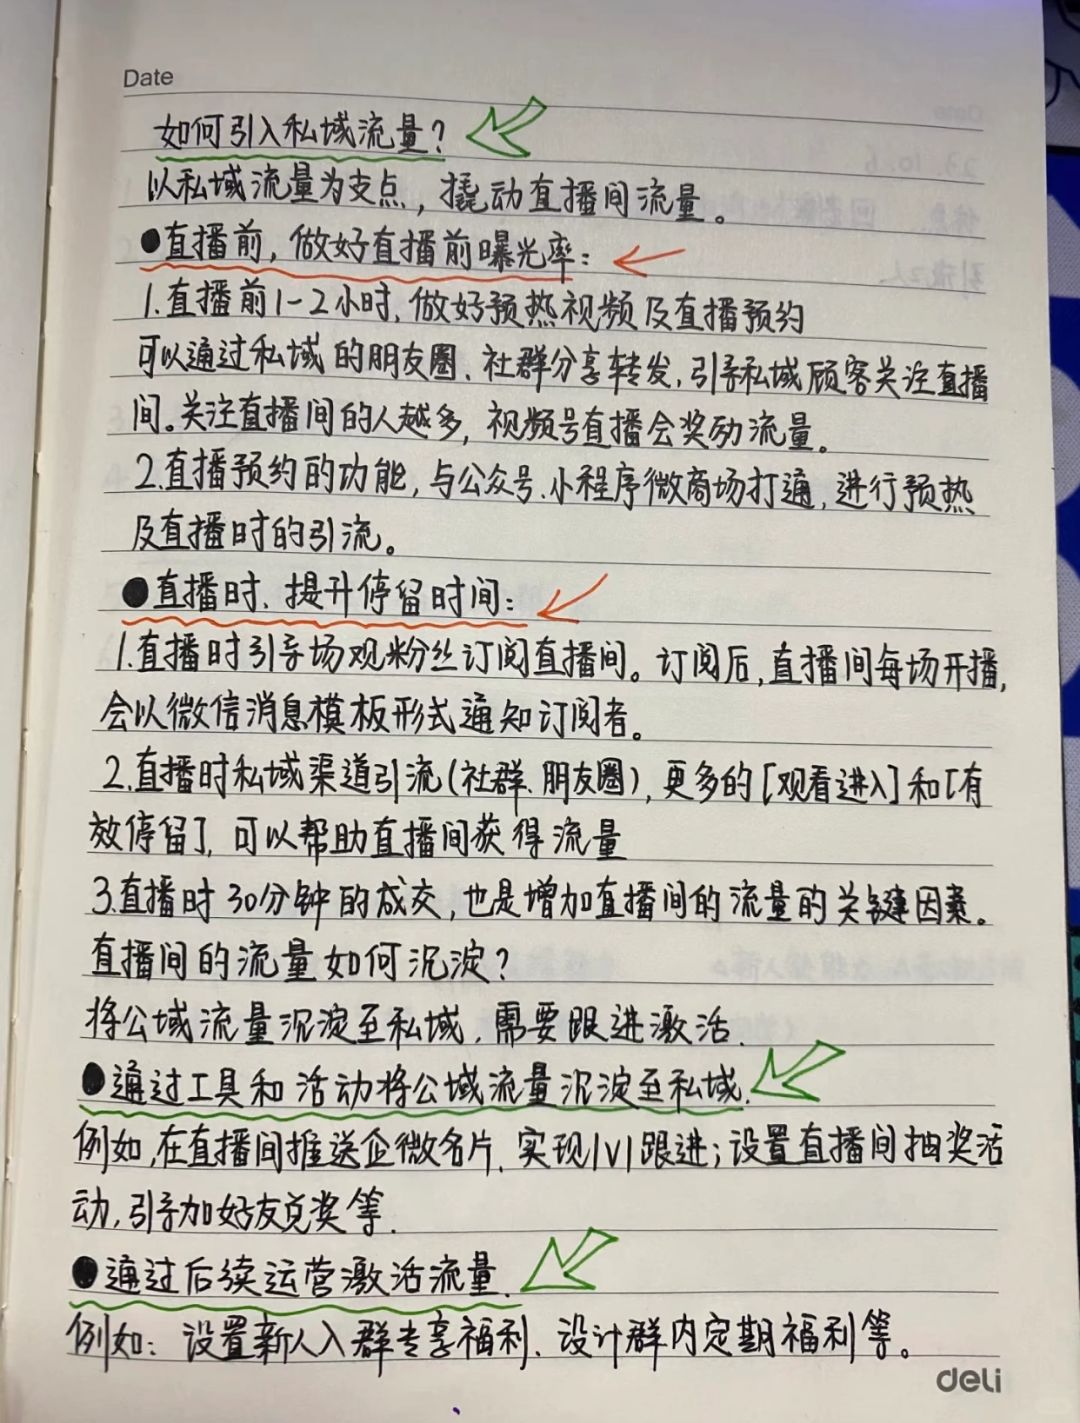 Date
如何引入私域流量?
以私域流量为支点，撬动直播间流量。
●直播前，做好直播前曝光率：
1.直播前1-2小时,做好预热视频及直播预约
可以通过私域的朋友圈、社群分享转发,引导私域顾客关注直播
间。关注直播间的人越多，视频号直播会奖励流量。
2.直播预约的功能,与公众号.小程序微商场打通,进行预热
及直播时的引流。
●直播时、提升停留时间：
1.直播时引导场观粉丝订阅直播间。订阅后,直播间每场开播,
会以微信消息模板形式通知订阅者。
2.直播时私域渠道引流(社群、朋友圈),更多的[观看进入]和[有
效停留],可以帮助直播间获得流量
3.直播时30分钟的成交,也是增加直播间的流量的关键因素。
直播间的流量如何沉淀?
将公域流量沉淀至私域,需要跟进激活.
●通过工具和活动将公域流量沉淀至私域.
例如,在直播间推送企微名片、实现1V1跟进;设置直播间抽奖活
动,引导加好友兑奖等.
●通过后续运营激活流量.
例如：设置新人入群专享福利、设计群内定期福利等。
deli